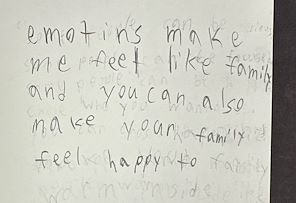 emotins make
me feel like family
and you can also
make your family
feel happy to